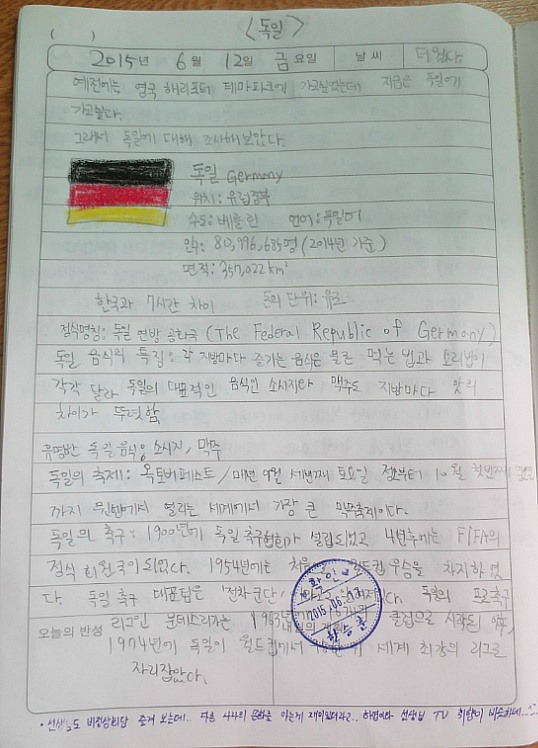 ( )
<독일>
2015년 6월 12일 금요일 날씨 더웠다.
예전에는 영국 해리포터 테마파크에 가고싶었는데 지금은 독일에
가고싶다.
그래서 독일에 대해 조사해보았다.
독일 Germany
위치: 유럽중부
수도: 베를린 언어: 독일어
인구: 80,996,685명 (2014년 기준)
면적: 357,022㎢
한국과 7시간 차이 돈의 단위: 유로
정식명칭: 독일 연방 공화국 (The Federal Republic of Germany)
독일 음식의 특징: 각 지방마다 즐기는 음식은 물론 먹는 법과 요리법이
각각 달라 독일의 대표적인 음식인 소시지와 맥주도 지방마다 맛의
차이가 뚜렷함
유명한 독일음식: 소시지, 맥주
독일의 축제: 옥토버페스트 / 매년 9월 세번째 토요일 정오부터 10월 첫번째
까지 뮌헨에서 열리는 세계에서 가장 큰 맥주축제이다.
독일의 축구: 1900년에 독일 축구협회가 설립되었고 4년후에는 FIFA의
정식 회원국이 되었다. 1954년에는 처음 월드컵 우승을 차지하였
다. 독일 축구 대표팀은 '전차군단' 독일의 프로축구
오늘의 반성 리그인 분데스리가는 1963년 클럽으로 시작된 이후,
1974년에 독일이 월드컵에서 세계 최강의 리그로
자리잡았다.
확인
2015.06.
•선생님도 비정상회담 즐겨 보는데.. 다른 나라의 문화를 아는게 재미있더라고.. 하연이와 선생님 TV 취향이 비슷하네..^^